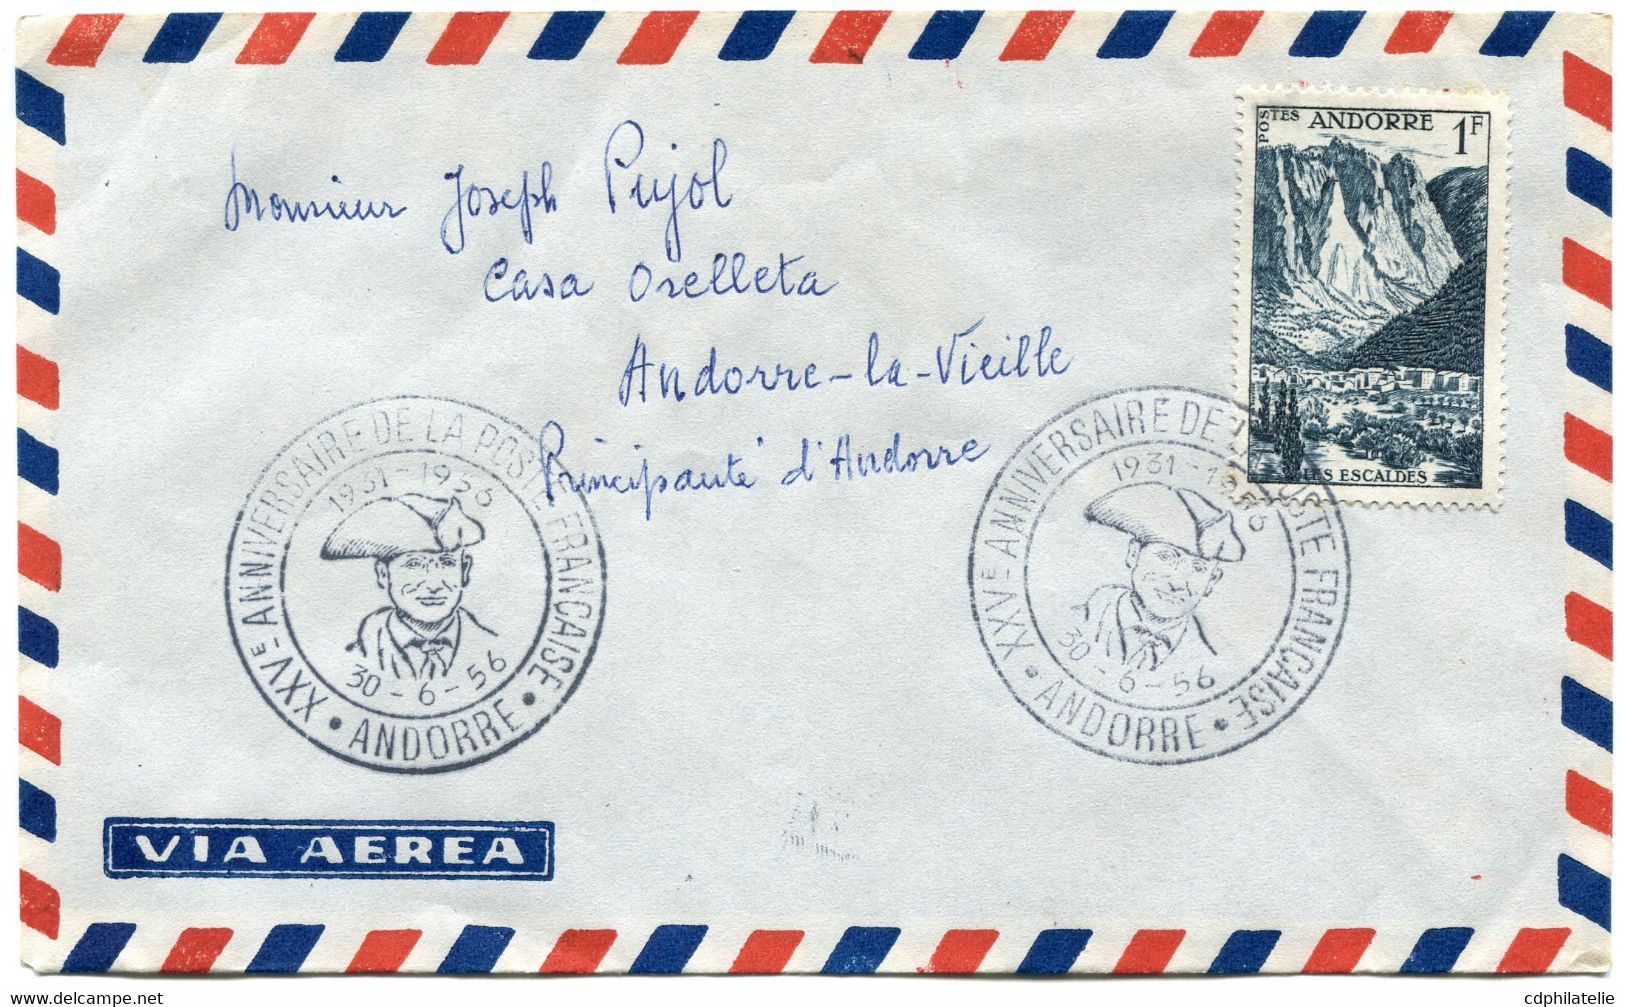 POSTES ANDORRE 1F
LES ESCALDES
Monsieur Joseph Pujol
Casa Orelleta
Andorre-la-Vieille
Principauté d'Andorre
XXVE ANNIVERSAIRE DE LA POSTE FRANÇAISE
1931-1956
30-6-56
• ANDORRE •
XXVE ANNIVERSAIRE DE LA POSTE FRANÇAISE
1931-1956
30-6-56
• ANDORRE •
VIA AEREA
delcampe.net
cdphilatelie